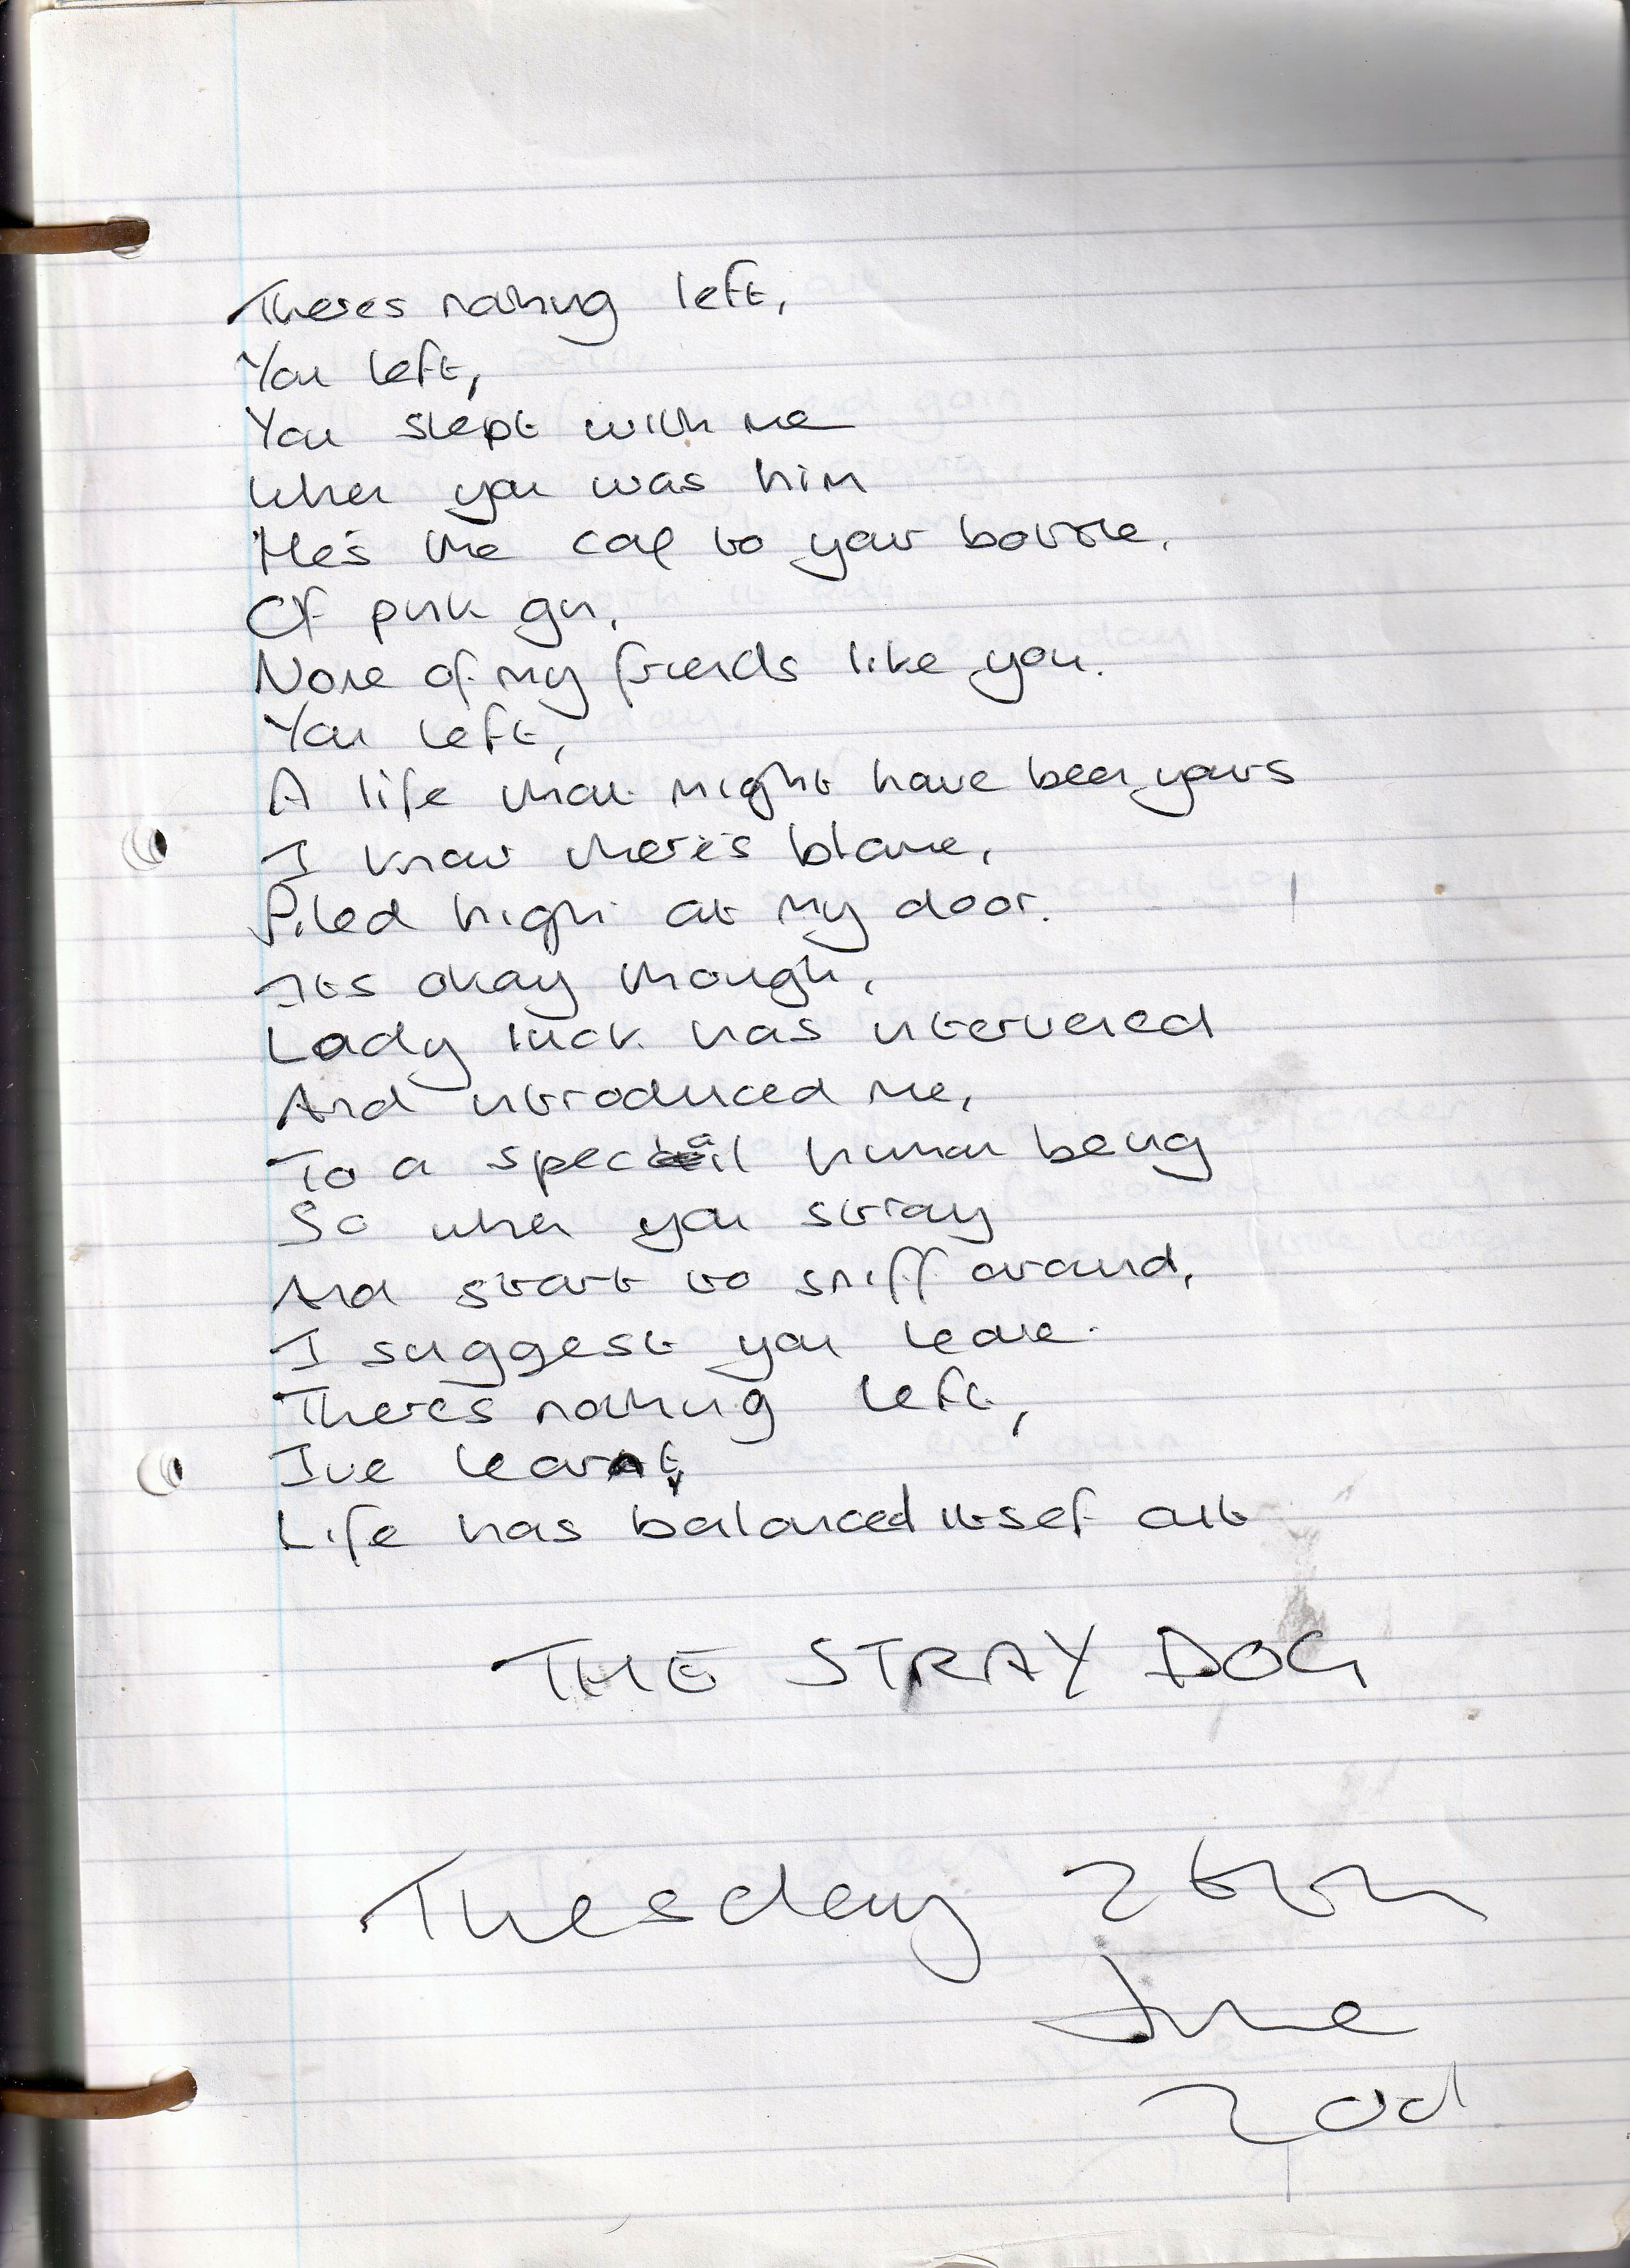 Theres nothing left,
You left,
You slept with me
When you was him
He's the cap to your bottle,
Of pink gin,
None of my friends like you.
You left,
A life that might have been yours
I know there's blame,
Piled high at my door.
Its okay though,
Lady luck has intervened
And introduced me,
To a special human being
So when you stray
And start to sniff around,
I suggest you leave.
There's nothing left,
Ive learnt,
Life has balanced itsef out
THE STRAY DOG
Tuesday 26th
June
2001